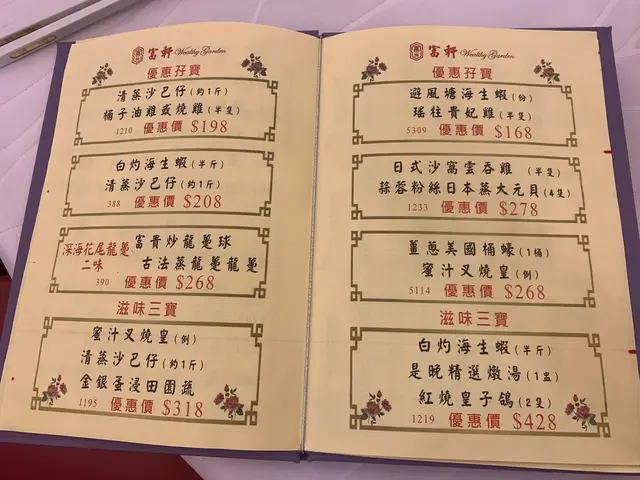 富軒 Wealthy Garden
優惠孖寶
清蒸沙巴仔(約1斤)
桶子油雞或燒雞(半隻)
1210 優惠價 $198
白灼海生蝦(半斤)
清蒸沙巴仔(約1斤)
388 優惠價 $208
深海花尾龍躉 二味
富貴炒龍躉球
古法蒸龍躉龍躉
390 優惠價 $268
滋味三寶
蜜汁叉燒皇(例)
清蒸沙巴仔(約1斤)
金銀蛋浸田園蔬
1195 優惠價 $318
富軒 Wealthy Garden
優惠孖寶
避風塘海生蝦(份)
瑤柱貴妃雞(半隻)
5309 優惠價 $168
日式沙窩雲吞雞(半隻)
蒜蓉粉絲日本蒸大元貝(4隻)
1233 優惠價 $278
薑蔥美國桶蠔(1桶)
蜜汁叉燒皇(例)
5114 優惠價 $268
滋味三寶
白灼海生蝦(半斤)
是晚精選燉湯(1盅)
紅燒皇子鴿(2隻)
1219 優惠價 $428